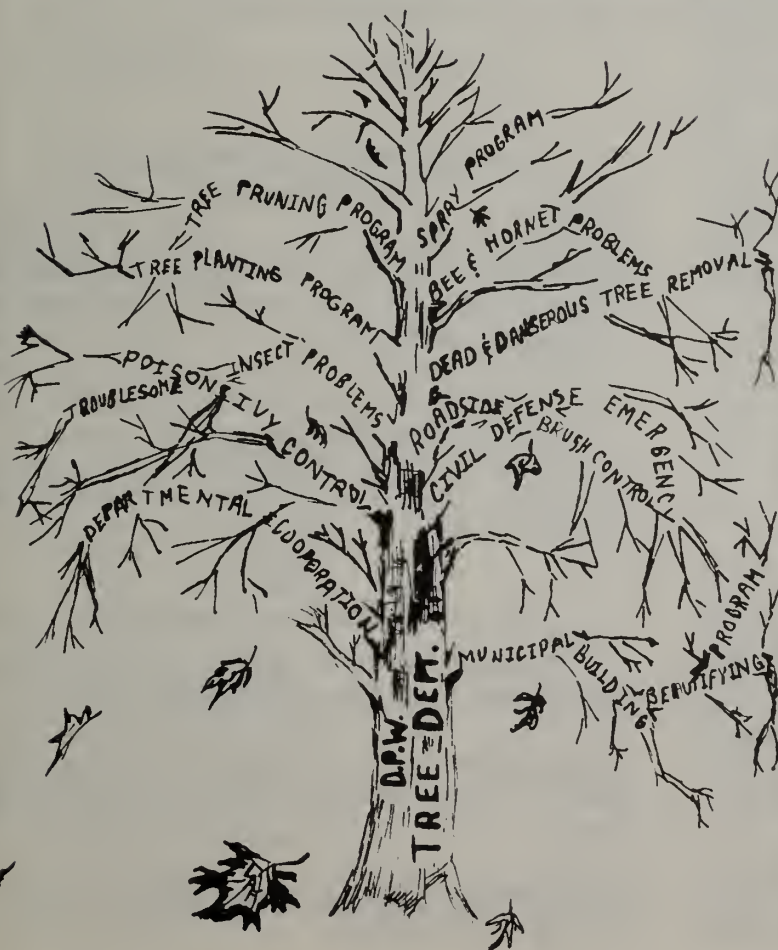 TREE PRUNING PROGRAM
SPRAY PROGRAM
TREE PLANTING PROGRAM
BEE & HORNET PROBLEMS
DEAD & DANGEROUS TREE REMOVAL
INSECT PROBLEMS
TROUBLESOME
POISON IVY CONTROL
ROADSIDE
BRUSH CONTROL
CIVIL DEFENSE
EMERGENCY
DEPARTMENTAL
COOPORATION
MUNICIPAL
BUILDING
BEAUTIFYING
PROGRAM
D.P.W.
TREE-DEPT.